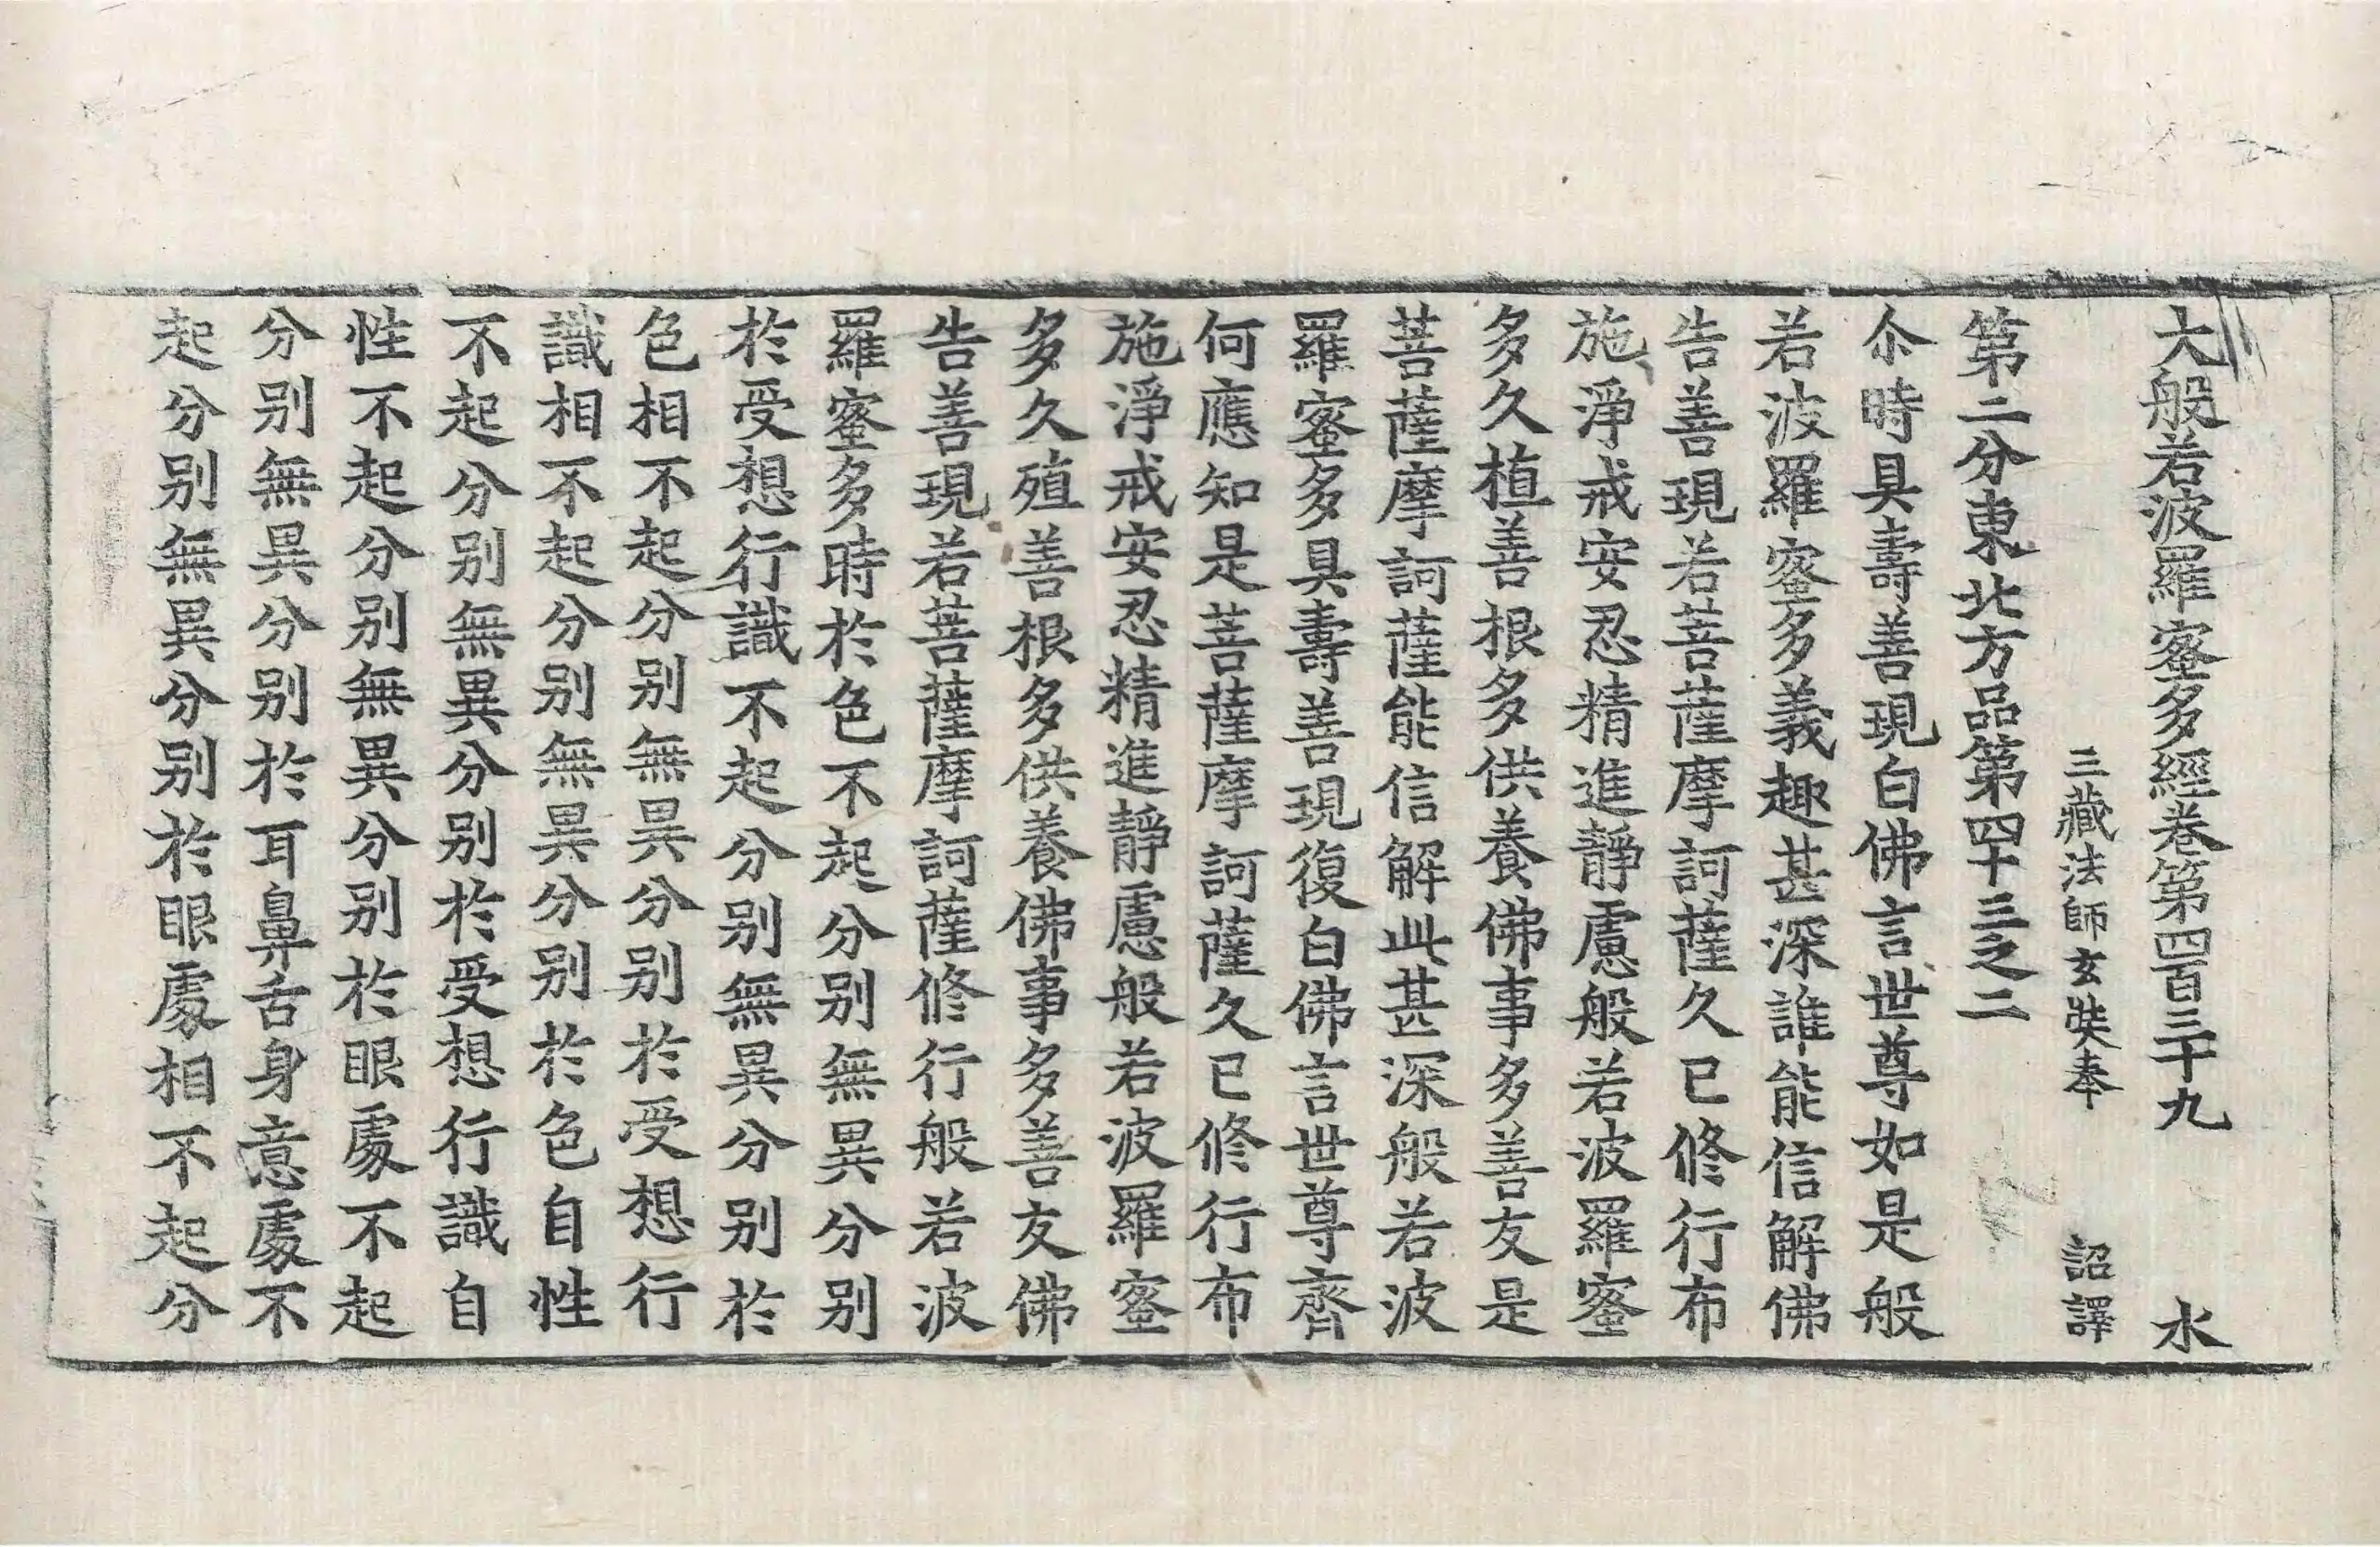 大般若波羅蜜多經卷第四百三十九 水
三藏法師玄奘奉 詔譯
第二分東北方品第四十三之二
尒時具壽善現白佛言世尊如是般
若波羅蜜多義趣甚深誰能信解佛
告善現若菩薩摩訶薩久已修行布
施淨戒安忍精進靜慮般若波羅蜜
多久植善根多供養佛事多善友是
菩薩摩訶薩能信解此甚深般若波
羅蜜多具壽善現復白佛言世尊齊
何應知是菩薩摩訶薩久已修行布
施淨戒安忍精進靜慮般若波羅蜜
多久殖善根多供養佛事多善友佛
告善現若菩薩摩訶薩修行般若波
羅蜜多時於色不起分別無異分別
於受想行識不起分別無異分別於
色相不起分別無異分別於受想行
識相不起分別無異分別於色自性
不起分別無異分別於受想行識自
性不起分別無異分別於眼處不起
分別無異分別於耳鼻舌身意處不
起分別無異分別於眼處相不起分